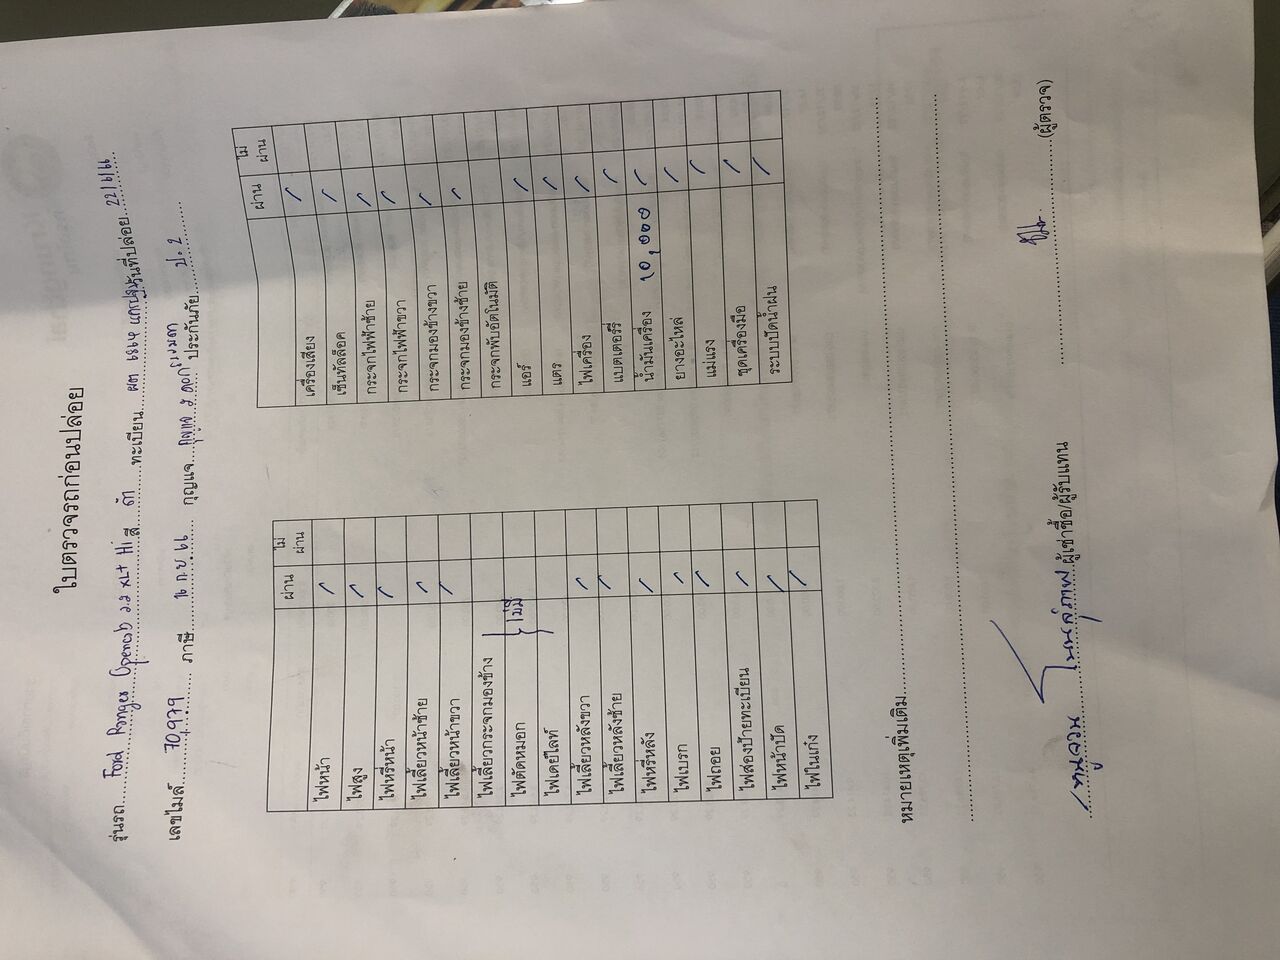 ใบตรวจรถก่อนปล่อย
รุ่นรถ Ford Ranger Opencab 2.2 XL+ Hi สี ดำ ทะเบียน ผต 6864 วันที่ปล่อย 22/6/66
เลขไมล์ 70,979 ภาษี 16 ก.ย. 66 กุญแจ ประกันภัย ป.2
ผ่าน ไม่ผ่าน
ไฟหน้า
ไฟสูง
ไฟหรี่หน้า
ไฟเลี้ยวหน้าซ้าย
ไฟเลี้ยวหน้าขวา
ไฟเลี้ยวกระจกมองข้าง
ไฟตัดหมอก ไม่มี
ไฟเดย์ไลท์
ไฟเลี้ยวหลังขวา
ไฟเลี้ยวหลังซ้าย
ไฟหรี่หลัง
ไฟเบรก
ไฟถอย
ไฟส่องป้ายทะเบียน
ไฟหน้าปัด
ไฟในเก๋ง
ผ่าน ไม่ผ่าน
เครื่องเสียง
เซ็นทัลล็อค
กระจกไฟฟ้าซ้าย
กระจกไฟฟ้าขวา
กระจกมองข้างขวา
กระจกมองข้างซ้าย
กระจกพับอัตโนมัติ
แอร์
แตร
ไฟเครื่อง
แบตเตอร์รี่
น้ำมันเครื่อง 10,000
ยางอะไหล่
แม่แรง
ชุดเครื่องมือ
ระบบปัดน้ำฝน
หมายเหตุเพิ่มเติม
ผู้เช่าซื้อ/ผู้รับแทน
(ผู้ตรวจ)